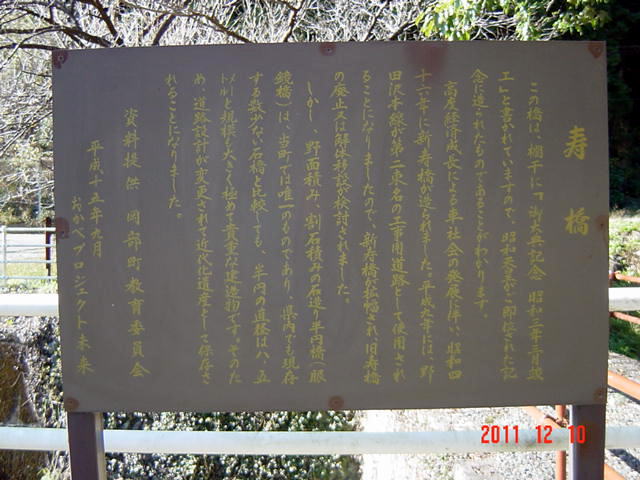 寿橋
この橋は、欄干に「御大典記念 昭和三年三月竣
工」と書かれていますので、昭和天皇がご即位された記
念に造られたものであることがわかります。
高度経済成長による車社会の発展に伴い、昭和四
十六年に新寿橋が造られました。平成九年には、野
田沢本線が第二東名の工事用道路として使用され
ることになりましたので、新寿橋が拡幅され、旧寿橋
の廃止又は解体移設が検討されました。
しかし、野面積み、割石積みの石造り半円橋(眼
鏡橋)は、当町では唯一のものであり、県内でも現存
する数少ない石橋と比較しても、半円の直径は八・五
メートルと規模も大きく極めて貴重な建造物です。そのた
め、道路設計が変更されて近代化遺産として保存さ
れることになりました。
資料提供 岡部町教育委員会
平成十五年九月
おかべプロジェクト未来
2011 12 10